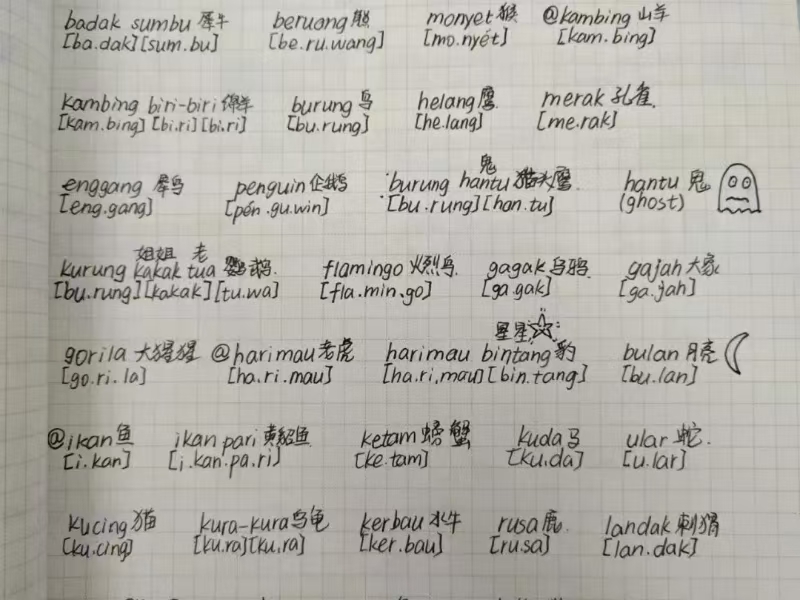 badak sumbu 犀牛 beruang 熊 monyet 猴 @kambing 山羊
[ba.dak][sum.bu] [be.ru.wang] [mo.nyét] [kam.bing]
kambing biri-biri 绵羊 burung 鸟 helang 鹰 merak 孔雀
[kam.bing] [bi.ri] [bi.ri] [bu.rung] [he.lang] [me.rak]
鬼
enggang 犀鸟 penguin 企鹅 burung hantu 猫头鹰 hantu 鬼
[eng.gang] [pén.gu.win] [bu.rung][han.tu] (ghost)
姐姐 老
kurung kakak tua 鹦鹉 flamingo 火烈鸟 gagak 乌鸦 gajah 大象
[bu.rung][kakak][tu.wa] [fla.min.go] [ga.gak] [ga.jah]
星星
gorila 大猩猩 @harimau 老虎 harimau bintang 豹 bulan 月亮
[go.ri.la] [ha.ri.mau] [ha.ri.mau][bin.tang] [bu.lan]
@ikan 鱼 ikan pari 黄貂鱼 ketam 螃蟹 kuda 马 ular 蛇
[i.kan] [i.kan.pa.ri] [ke.tam] [ku.da] [u.lar]
kucing 猫 kura-kura 乌龟 kerbau 水牛 rusa 鹿 landak 刺猬
[ku.cing] [ku.ra][ku.ra] [ker.bau] [ru.sa] [lan.dak]